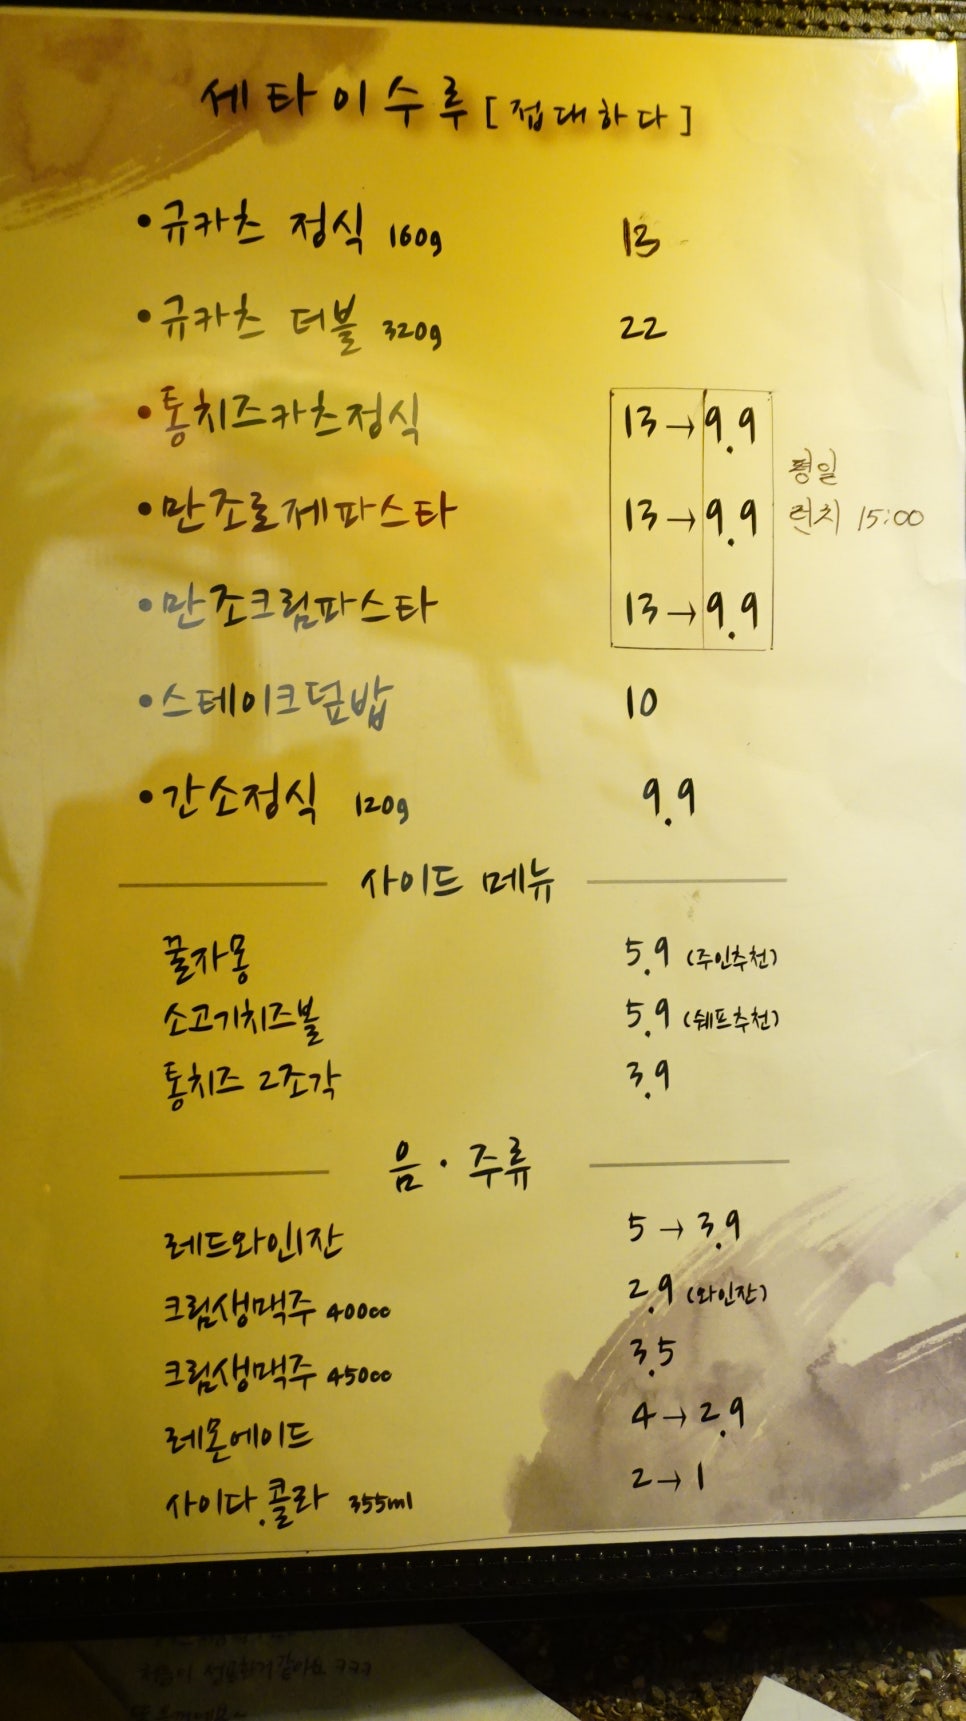 세타이수루 [접대하다]
•규카츠 정식 160g 13
•규카츠 더블 320g 22
•통치즈카츠정식 13→9.9
평일
•만조로제파스타 13→9.9 런치 15:00
•만조크림파스타 13→9.9
•스테이크덮밥 10
•간소정식 120g 9.9
사이드 메뉴
꿀자몽 5.9 (주인추천)
소고기치즈볼 5.9 (쉐프추천)
통치즈 2조각 3.9
음·주류
레드와인1잔 5→3.9
크림생맥주 400cc 2.9 (와인잔)
크림생맥주 450cc 3.5
레몬에이드 4→2.9
사이다.콜라 355ml 2→1